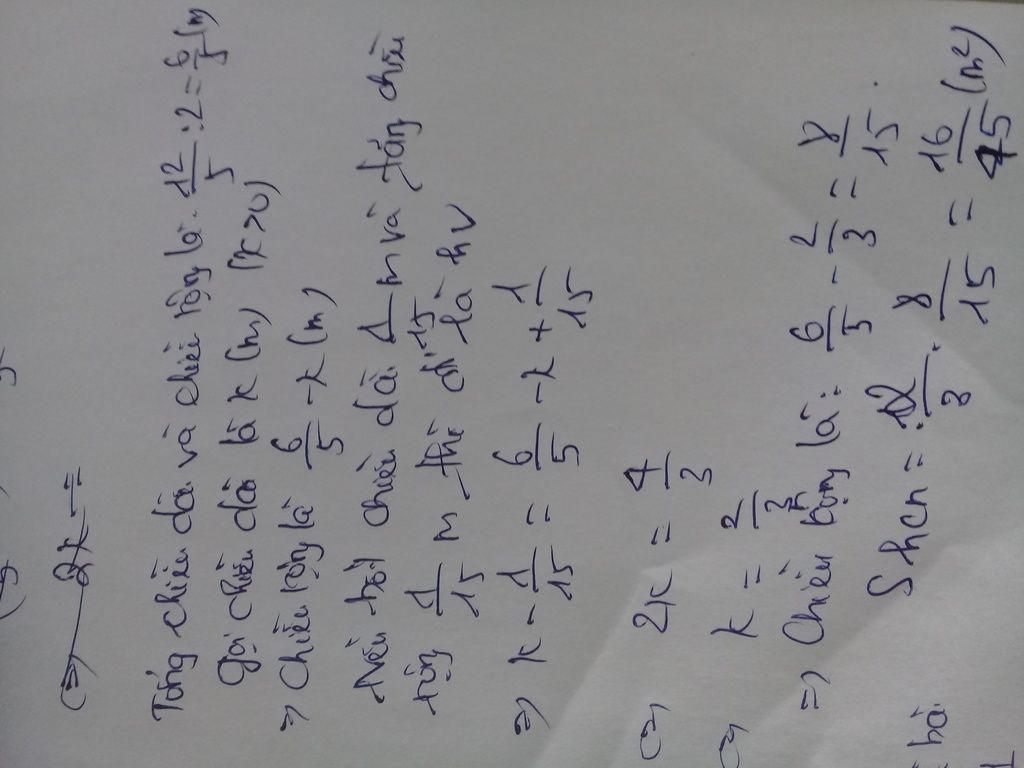 (=) 2x =
Tổng chiều dài và chiều rộng là. 12/5 : 2 = 6/5 (m)
gọi chiều dài là x (m) (x > 0)
=> chiều rộng là 6/5 - x (m)
Nếu bớt chiều dài 1/15 m và tăng chiều
rộng 1/15 m thì đc là hv
=> x - 1/15 = 6/5 - x + 1/15
(=) 2x = 4/3
(=) x = 2/3
=> Chiều rộng là: 6/5 - 2/3 = 8/15 .
Shcn = 2/3 . 8/15 = 16/45 (m²)
bài